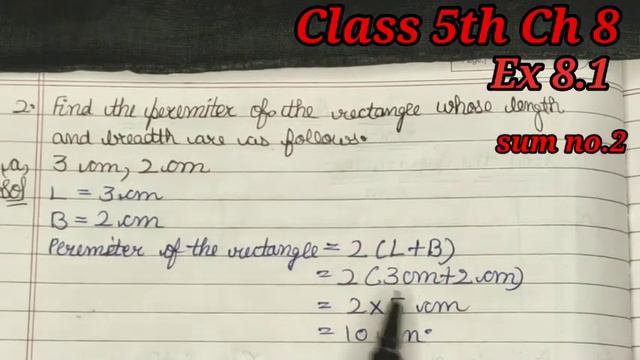 Class 5th Ch 8
Ex 8.1
2. Find the peremiter of the rectangle whose length
and breadth are as follows.
sum no.2
a, 3 cm, 2 cm
Sol L = 3 cm
B = 2 cm
Peremeter of the rectangle = 2 (L+B)
= 2 (3cm+2cm)
= 2 x cm
= 10